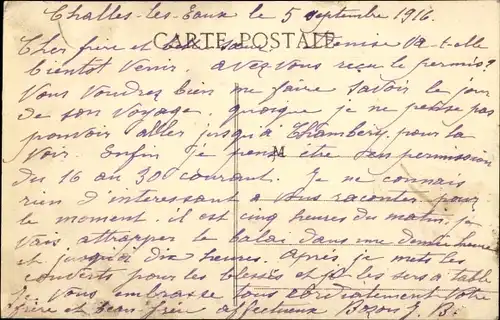 Challes-les-Eaux le 5 septembre 1916.
CARTE POSTALE
Cher frère et belle sœur Denise va-t-elle
bientôt venir. avez-vous reçu le permis?
Vous voudrez bien me faire savoir le jour
de son voyage quoique je ne pense pas
pouvoir aller jusqu'à Chambéry pour la
voir. Enfin je pense être en permission
M
du 16 au 30 courant. Je ne connais
rien d'interessant a vous raconter pour
le moment. il est cinq heures du matin, je
vais attrapper le balai dans une demie heure
et jusqu'a dix heures. Après je mets les
couverts pour les blessés et je les sers a table
Je vous embrasse tous cordialement Votre
frère et beau-frère affectueux Bozon J. B.